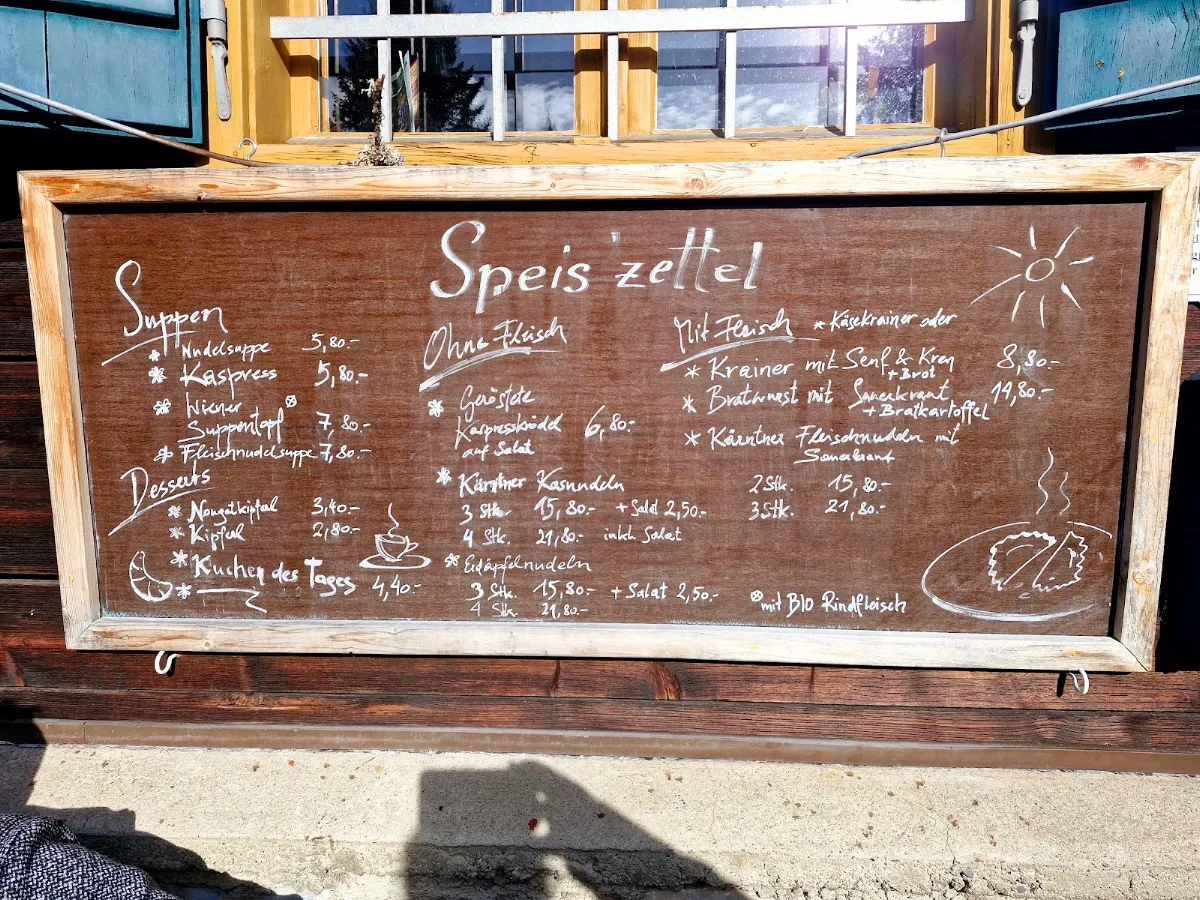 Speis'zettel
Suppen
* Nudelsuppe 5,80.-
* Kaspress 5,80.-
* Wiener ⊗
Suppentopf 7,80.-
* Fleischnudelsuppe 7,80.-
Desserts
* Nougatkipferl 3,40.-
* Kipferl 2,80.-
* Kuchen des Tages
* 4,40.-
Ohne Fleisch
* Geröstete
Kaspressknödel 6,80.-
auf Salat
* Kärntner Kasnudeln
3 Stk. 15,80.- + Salat 2,50.-
4 Stk. 21,80.- inkl. Salat
* Erdäpfelnudeln
3 Stk. 15,80.- + Salat 2,50.-
4 Stk. 21,80.-
Mit Fleisch
* Käsekrainer oder
* Krainer mit Senf & Kren 8,80.-
+ Brot
* Bratwurst mit Sauerkraut 14,80.-
+ Bratkartoffel
* Kärntner Fleischnudeln mit
Sauerkraut
2 Stk. 15,80.-
3 Stk. 21,80.-
⊗ mit BIO Rindfleisch